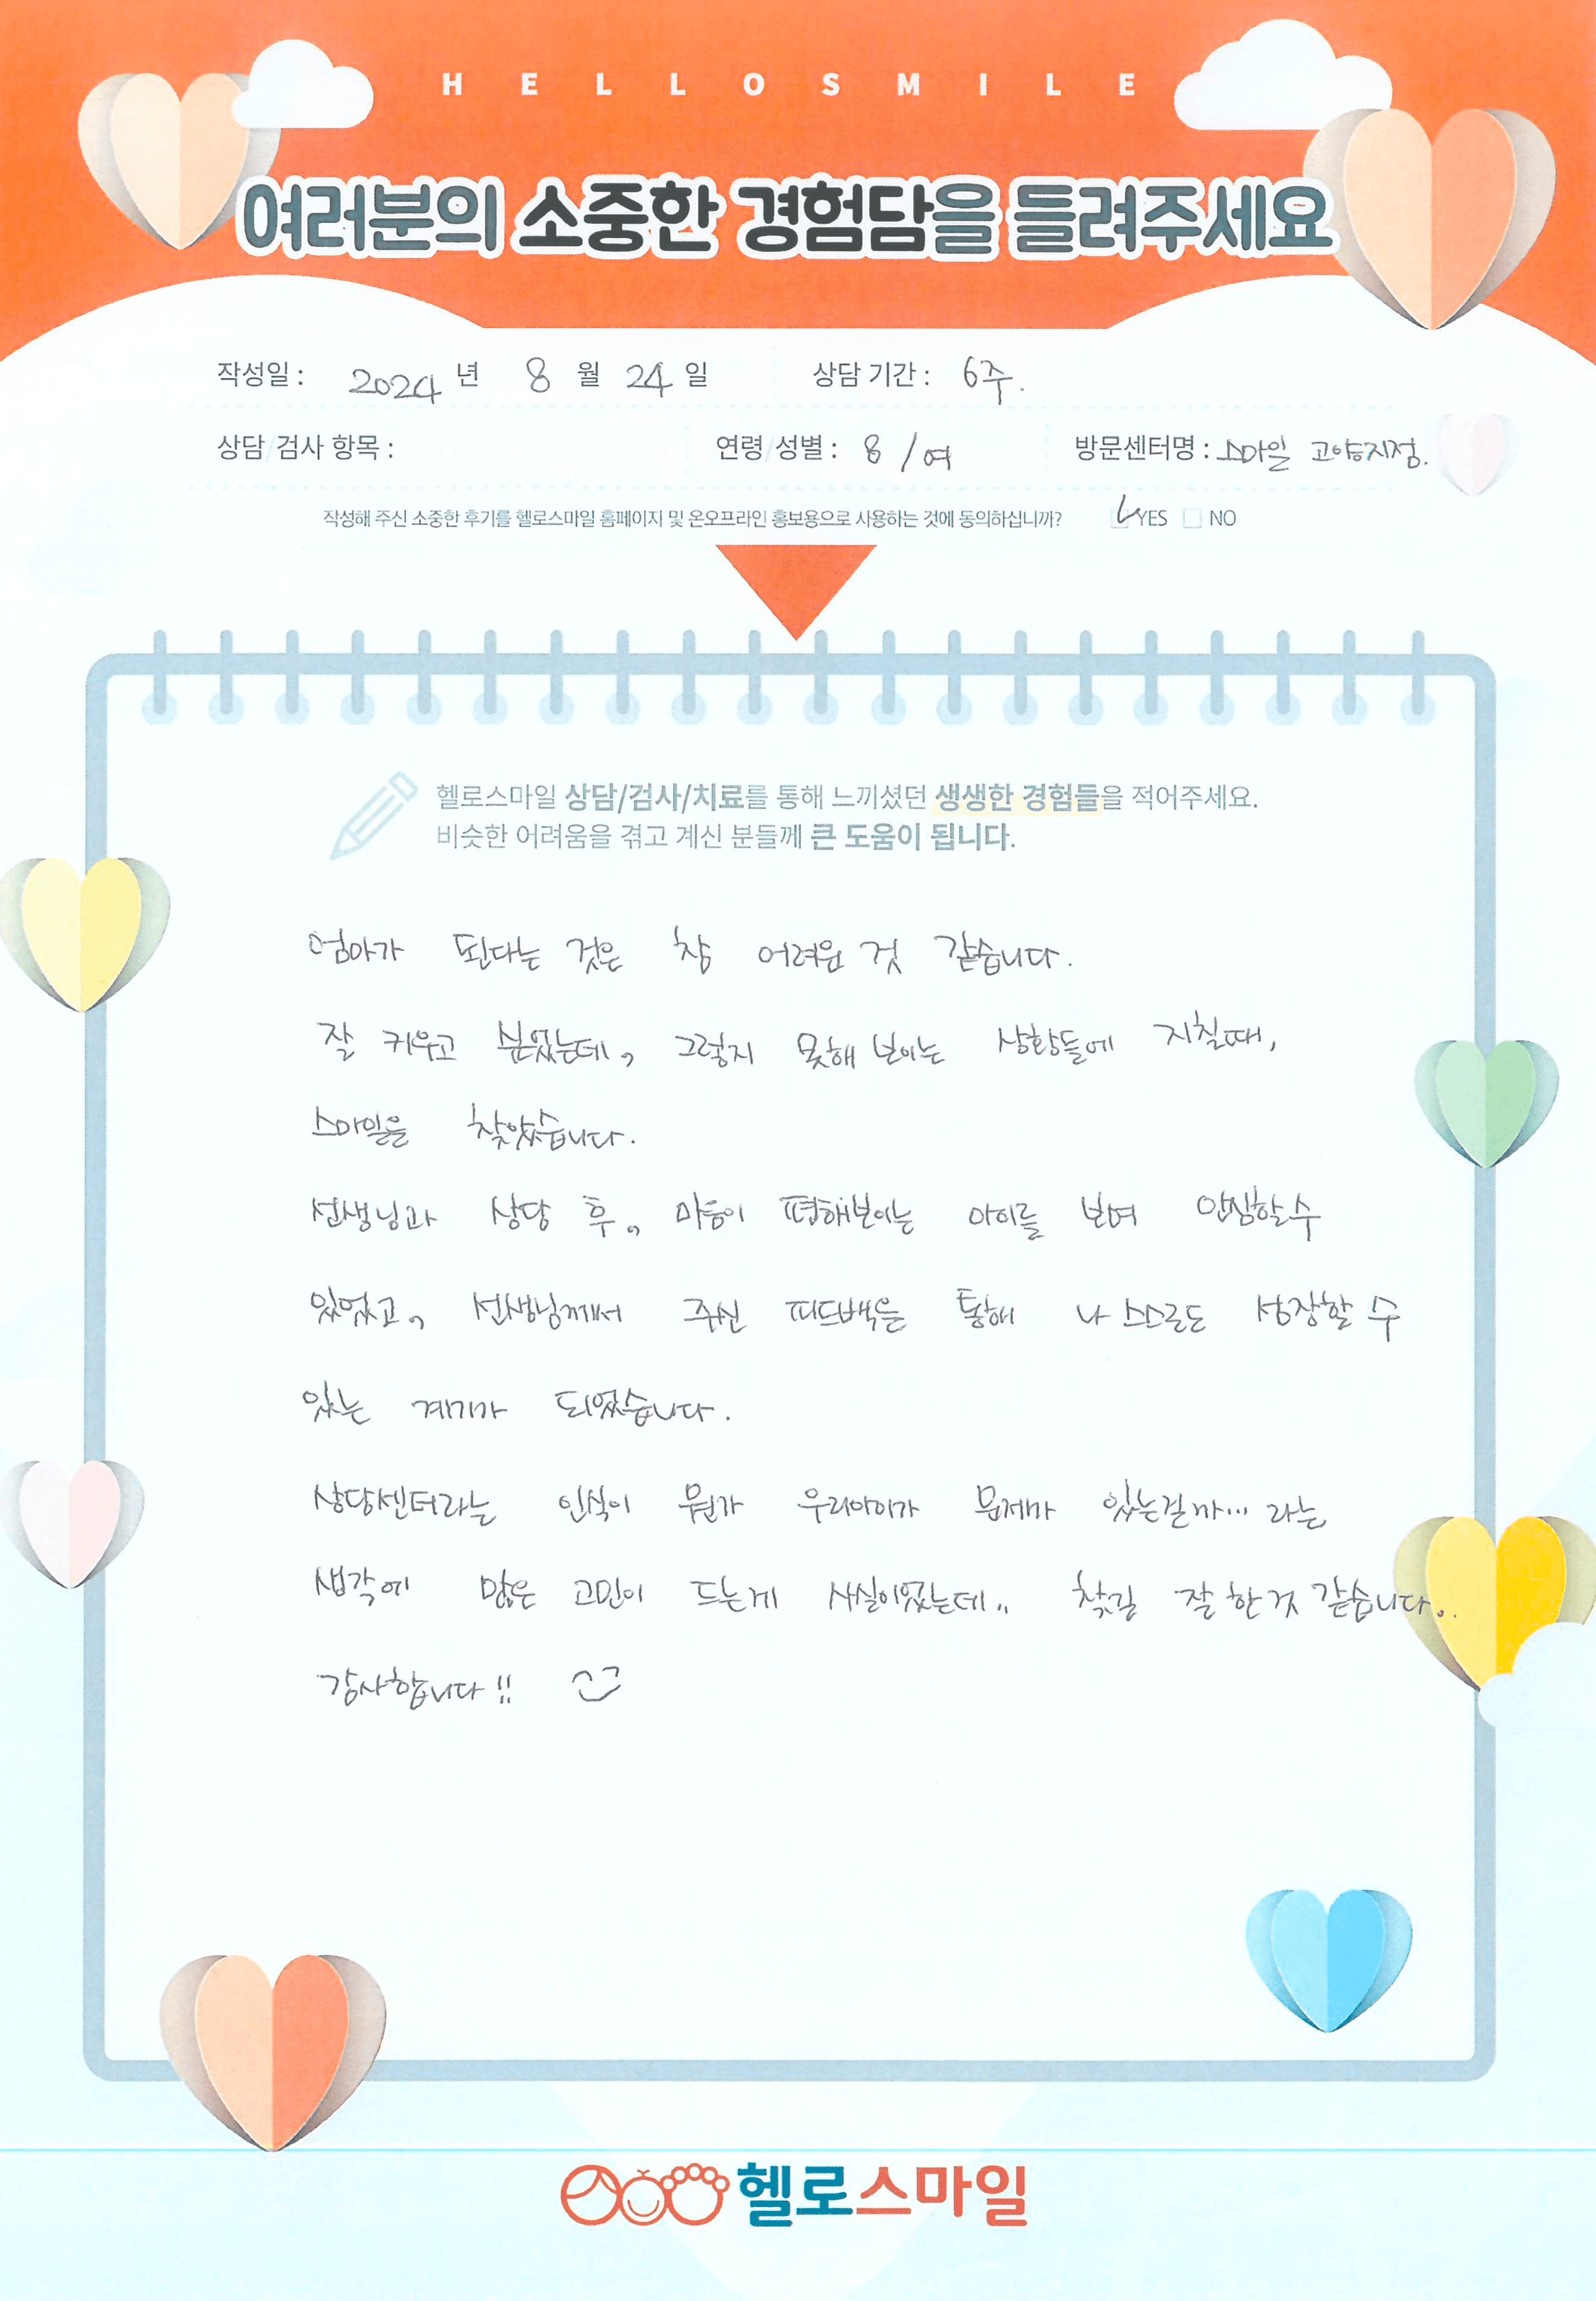 HELLOSMILE
여러분의 소중한 경험담을 들려주세요
작성일 : 2024 년 8 월 24 일 상담 기간 : 6주.
상담/검사 항목 : 연령/성별 : 8 / 여 방문센터명 : 스마일 고양지점.
작성해 주신 소중한 후기를 헬로스마일 홈페이지 및 온오프라인 홍보용으로 사용하는 것에 동의하십니까? YES NO
헬로스마일 상담/검사/치료를 통해 느끼셨던 생생한 경험들을 적어주세요.
비슷한 어려움을 겪고 계신 분들께 큰 도움이 됩니다.
엄마가 된다는 것은 참 어려운 것 같습니다.
잘 키우고 싶었는데, 그렇지 못해 보이는 상황들에 지칠때,
스마일을 찾았습니다.
선생님과 상담 후, 마음이 편해보이는 아이를 보며 안심할 수
있었고, 선생님께서 주신 피드백을 통해 나 스스로도 성장할 수
있는 계기가 되었습니다.
상담센터라는 인식이 뭔가 우리아이가 문제가 있는걸까... 라는
생각에 많은 고민이 드는게 사실이었는데.. 찾길 잘 한 것 같습니다..
감사합니다!!
헬로스마일